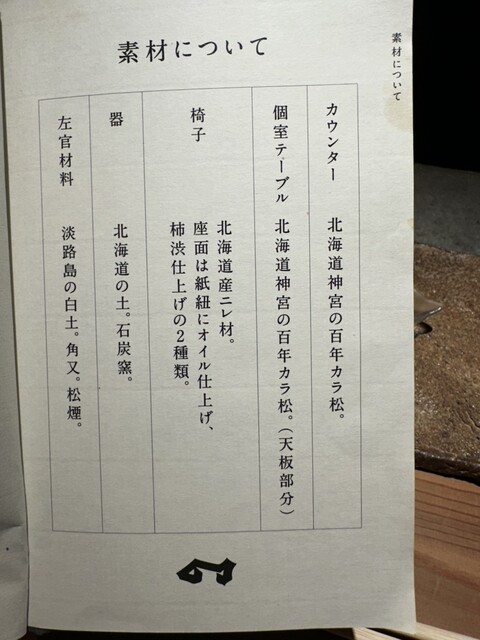 素材について
素材について
カウンター　北海道神宮の百年カラ松。
個室テーブル　北海道神宮の百年カラ松。（天板部分）
椅子　北海道産ニレ材。
座面は紙紐にオイル仕上げ、
柿渋仕上げの２種類。
器　北海道の土。石炭窯。
左官材料　淡路島の白土。角又。松煙。